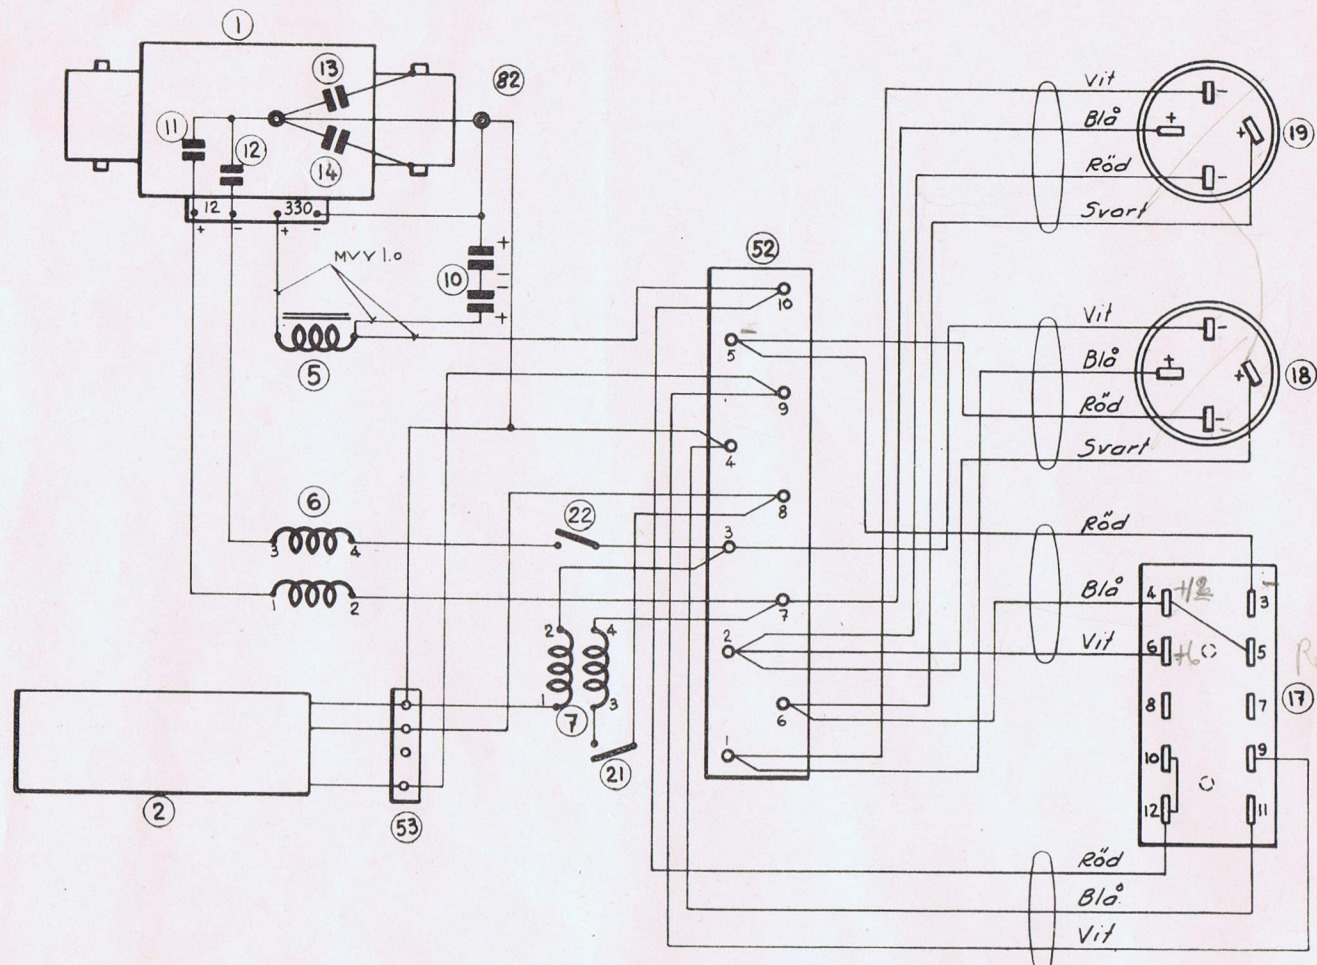 1
13
82
11
12
14
12
330
+
-
+
-
MVV 1.0
10
+
-
-
+
5
6
3
4
1
2
22
2
4
1
3
7
21
2
53
52
10
5
9
4
8
3
7
2
6
1
Vit
Blå
Röd
Svart
-
+
+
-
19
Vit
Blå
Röd
Svart
-
+
+
-
18
Röd
Blå
Vit
4
+12
3
6
+6
5
8
7
10
9
12
11
17
Röd
Blå
Vit